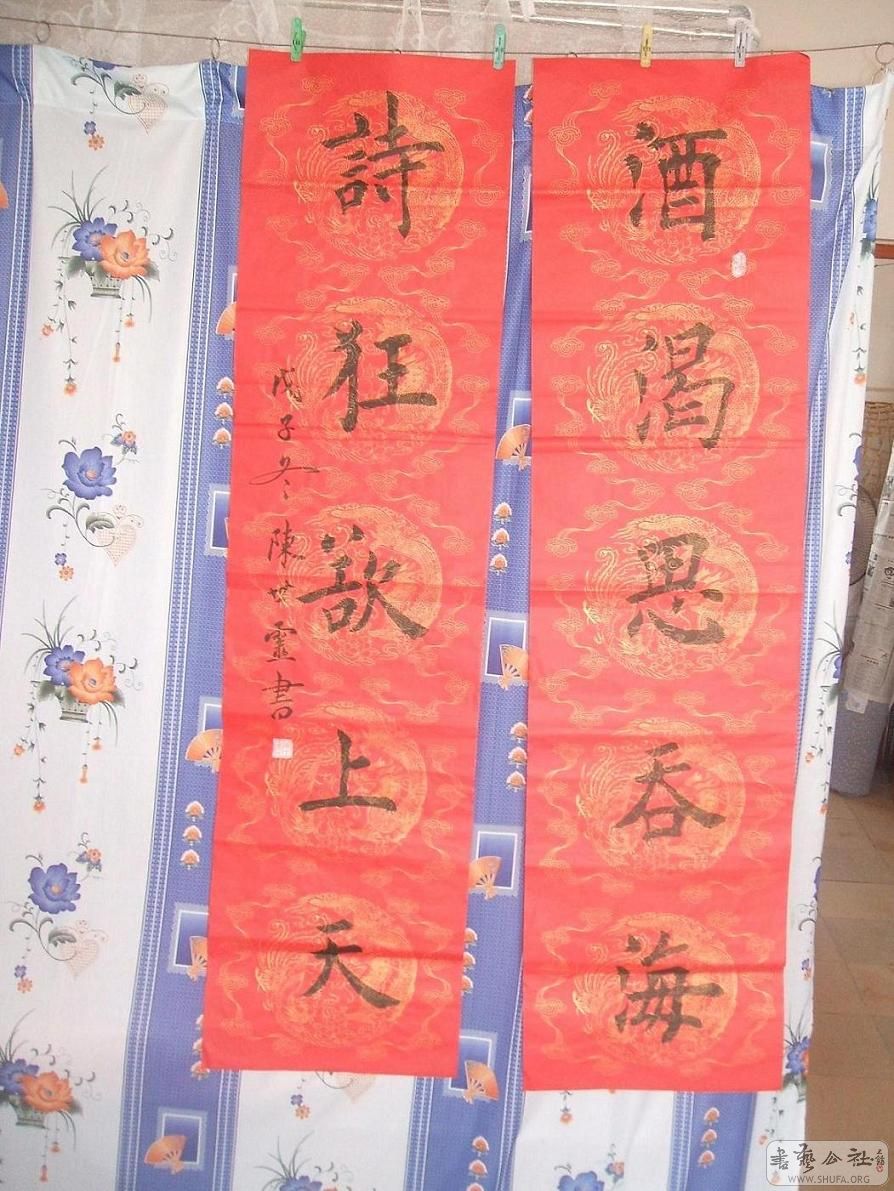 酒渴思吞海
詩狂欲上天
戊子冬陳世靈書
書藝公社
WWW.SHUFA.ORG